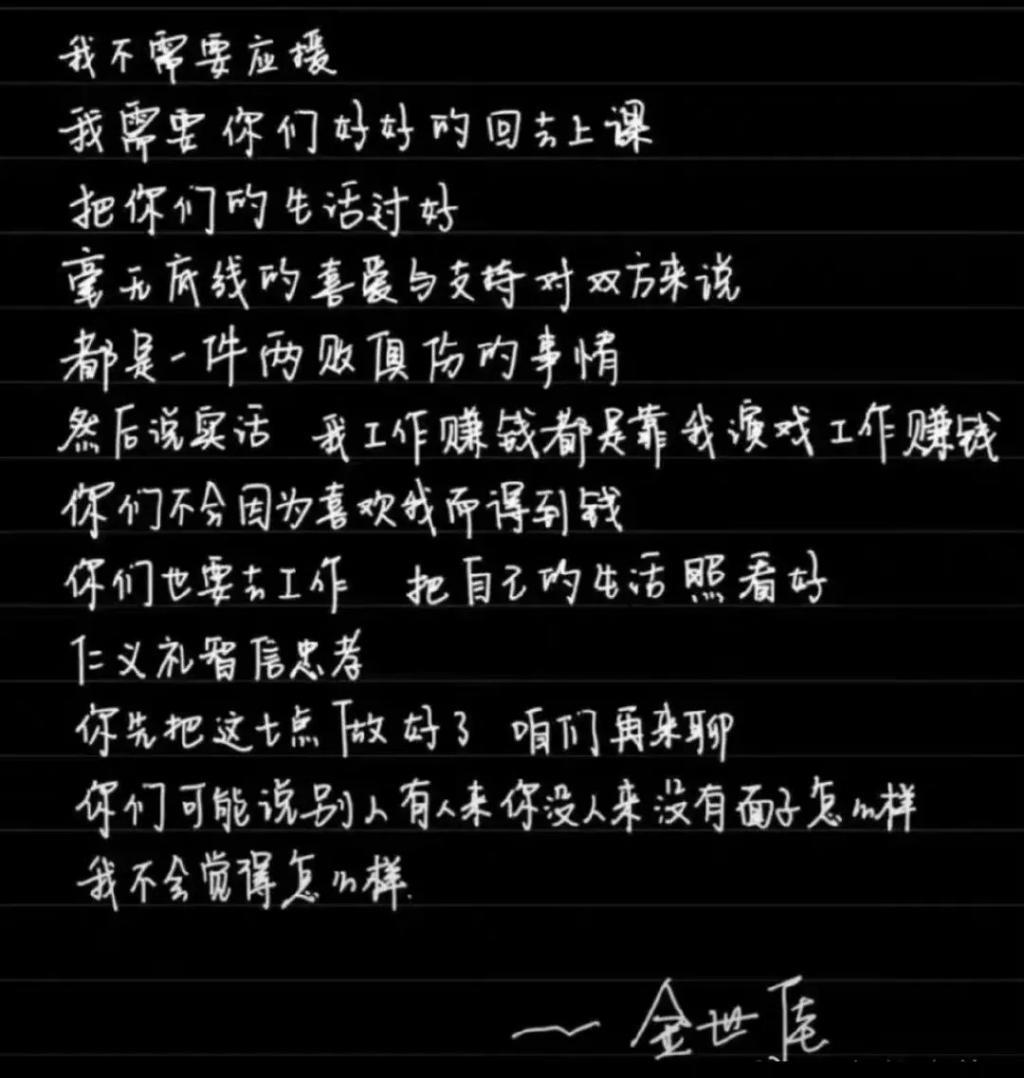 我不需要应援
我需要你们好好的回去上课
把你们的生活过好
毫无底线的喜爱与支持对双方来说
都是一件两败俱伤的事情
然后说实话 我工作赚钱都是靠我演戏工作赚钱
你们不会因为喜欢我而得到钱
你们也要去工作 把自己的生活照看好
仁义礼智信忠孝
你先把这七点做好了 咱们再来聊
你们可能说别人有人来你没人来没有面子怎么样
我不会觉得怎么样.
—— 金世佳